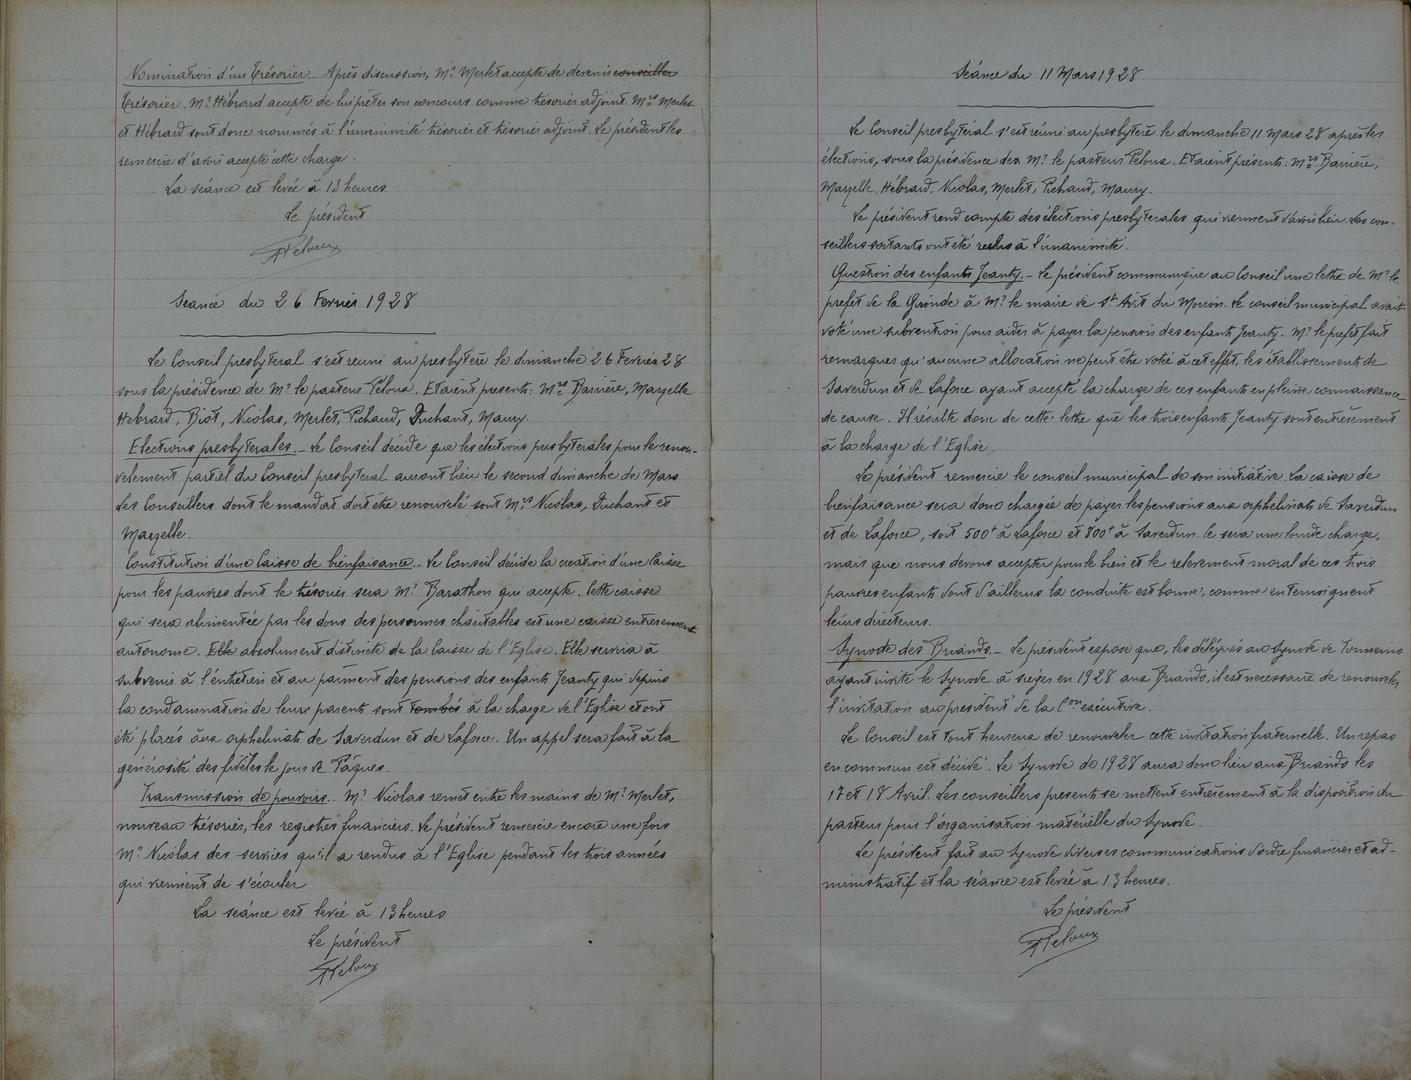 Nomination d'un Trésorier. _ Après discussion, Mr Merlet accepte de devenir conseiller
Trésorier. Mr Hébrard accepte de lui prêter son concours comme trésorier adjoint. Mrs Merlet
et Hébrard sont donc nommés à l'unanimité trésorier et trésorier adjoint. Le président les
remercie d'avoir accepté cette charge.
La séance est levée à 13 heures
Le président
Peloux
Séance du 26 Fevrier 1928
Le Conseil presbyteral s'est reuni au presbytère le dimanche 26 Fevrier 28
sous la présidence de Mr le pasteur Peloux. Etaient presents : Mrs Barrière, Mazelle
Hebrard, Biot, Nicolas, Merlet, Pichaud, Duchant, Maury.
Elections presbyterales. _ Le Conseil décide que les élections presbyterales pour le renou-
velement partiel du Conseil presbyteral auront lieu le second dimanche de Mars
Les Conseillers dont le mandat doit être renouvelé sont Mrs Nicolas, Duchant et
Mazelle.
Constitution d'une Caisse de bienfaisance. _ Le Conseil décide la creation d'une Caisse
pour les pauvres dont le trésorier sera Mr Barathon qui accepte. Cette caisse
qui sera alimentée par les dons des personnes charitables est une caisse entierement
autonome. Elle absolument distincte de la Caisse de l'Eglise. Elle servira à
subvenir à l'entretien et au paiment des pensions des enfants Jeanty qui depuis
la condamnation de leurs parents sont tombés à la charge de l'Eglise et ont
été placés aux orphelinats de Saverdun et de Laforce. Un appel sera fait à la
générosité des fidèles le jour de Pâques.
Transmission de pouvoirs. _ Mr Nicolas remet entre les mains de Mr Merlet,
nouveau trésorier, les registres financiers. Le président remercie encore une fois
Mr Nicolas des services qu'il a rendus à l'Eglise pendant les trois années
qui viennent de s'écouler
La seánce est levée à 13 heures
Le président
Peloux
Séance du 11 Mars 1928
Le Conseil presbytéral s'est réuni au presbytère le dimanche 11 Mars 28 après les
élections, sous la présidence de Mr le pasteur Peloux. Etaient présents : Mrs Barrière,
Mazelle, Hébrard, Nicolas, Merlet, Pichaud, Maury.
Le président rend compte des élections presbyterales qui viennent d'avoir lieu. Les con-
seillers sortants ont été réelus à l'unanimité.
Question des enfants Jeanty. _ Le président communique au Conseil une lettre de Mr le
prefet de la Gironde à Mr le maire de St Avit du Moiron. Le conseil municipal avait
voté une subvention pour aider à payer la pension des enfants Jeanty. Mr le prefet fait
remarquer qu'aucune allocation ne peut être votée à cet effet, les établissements de
Saverdun et de Laforce ayant accepté la charge de ces enfants en pleine connaissance
de cause. Il résulte donc de cette lettre que les trois enfants Jeanty sont entièrement
à la charge de l'Eglise.
Le président remercie le conseil municipal de son initiative. La caisse de
bienfaisance sera donc chargée de payer les pensions aux orphelinats de Saverdun
et de Laforce, soit 500f à Laforce et 800f à Saverdun. Ce sera une lourde charge,
mais que nous devons accepter pour le bien et le relevement moral de ces trois
pauvres enfants dont d'ailleurs la conduite est bonne, comme en temoignent
leurs directeurs.
Synode des Briands. _ Le president expose que, les délégués au Synode de Tonneins
ayant invité le Synode à sièger en 1928 aux Briands, il est necessaire de renouveler
l'invitation au president de la Con exécutive.
Le Conseil est tout heureux de renouveler cette invitation fraternelle. Un repas
en commun est décidé. Le Synode de 1928 aura donc lieu aux Briands les
17 et 18 Avril. Les conseillers presents se mettent entièrement à la disposition du
pasteur pour l'organisation matérielle du Synode.
Le président fait au Synode diverses communications d'ordre financier et ad-
ministratif et la séance est levée à 13 heures.
Le président
Peloux